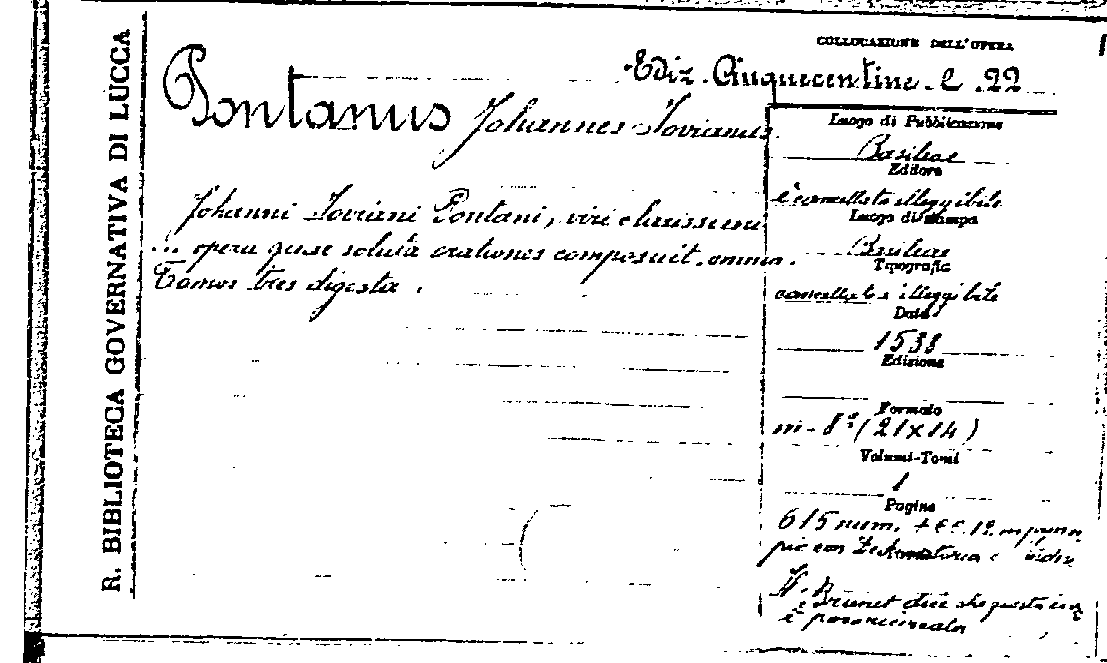 R. BIBLIOTECA GOVERNATIVA DI LUCCA
COLLOCAZIONE DELL'OPERA
Ediz. Cinquecentine. C. 22
Pontanus Johannes Jovianus.
Johanni Joviani Pontani, viri clarissimi
... opera quae soluta orationes composuit. omnia.
Tomos tres digesta.
Luogo di Pubblicazione
Basileae
Editore
è cancellato illeggibile
Luogo di stampa
Basileae
Tipografia
cancellato e illeggibile
Data
1538
Edizione
Formato
in-8º (21x14)
Volumi-Tomi
1
Pagine
615 num. + cc. 12 in
pio con e indice
Il Brunet dice che questa
è poco ricercata